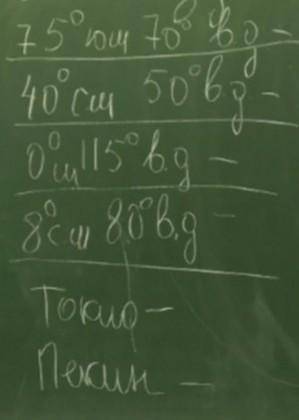 75° юш 70° в д –
40° сш 50° в.д –
0° ш 115° в.д –
8° с ш 80° в.д –
Токио –
Пекин –